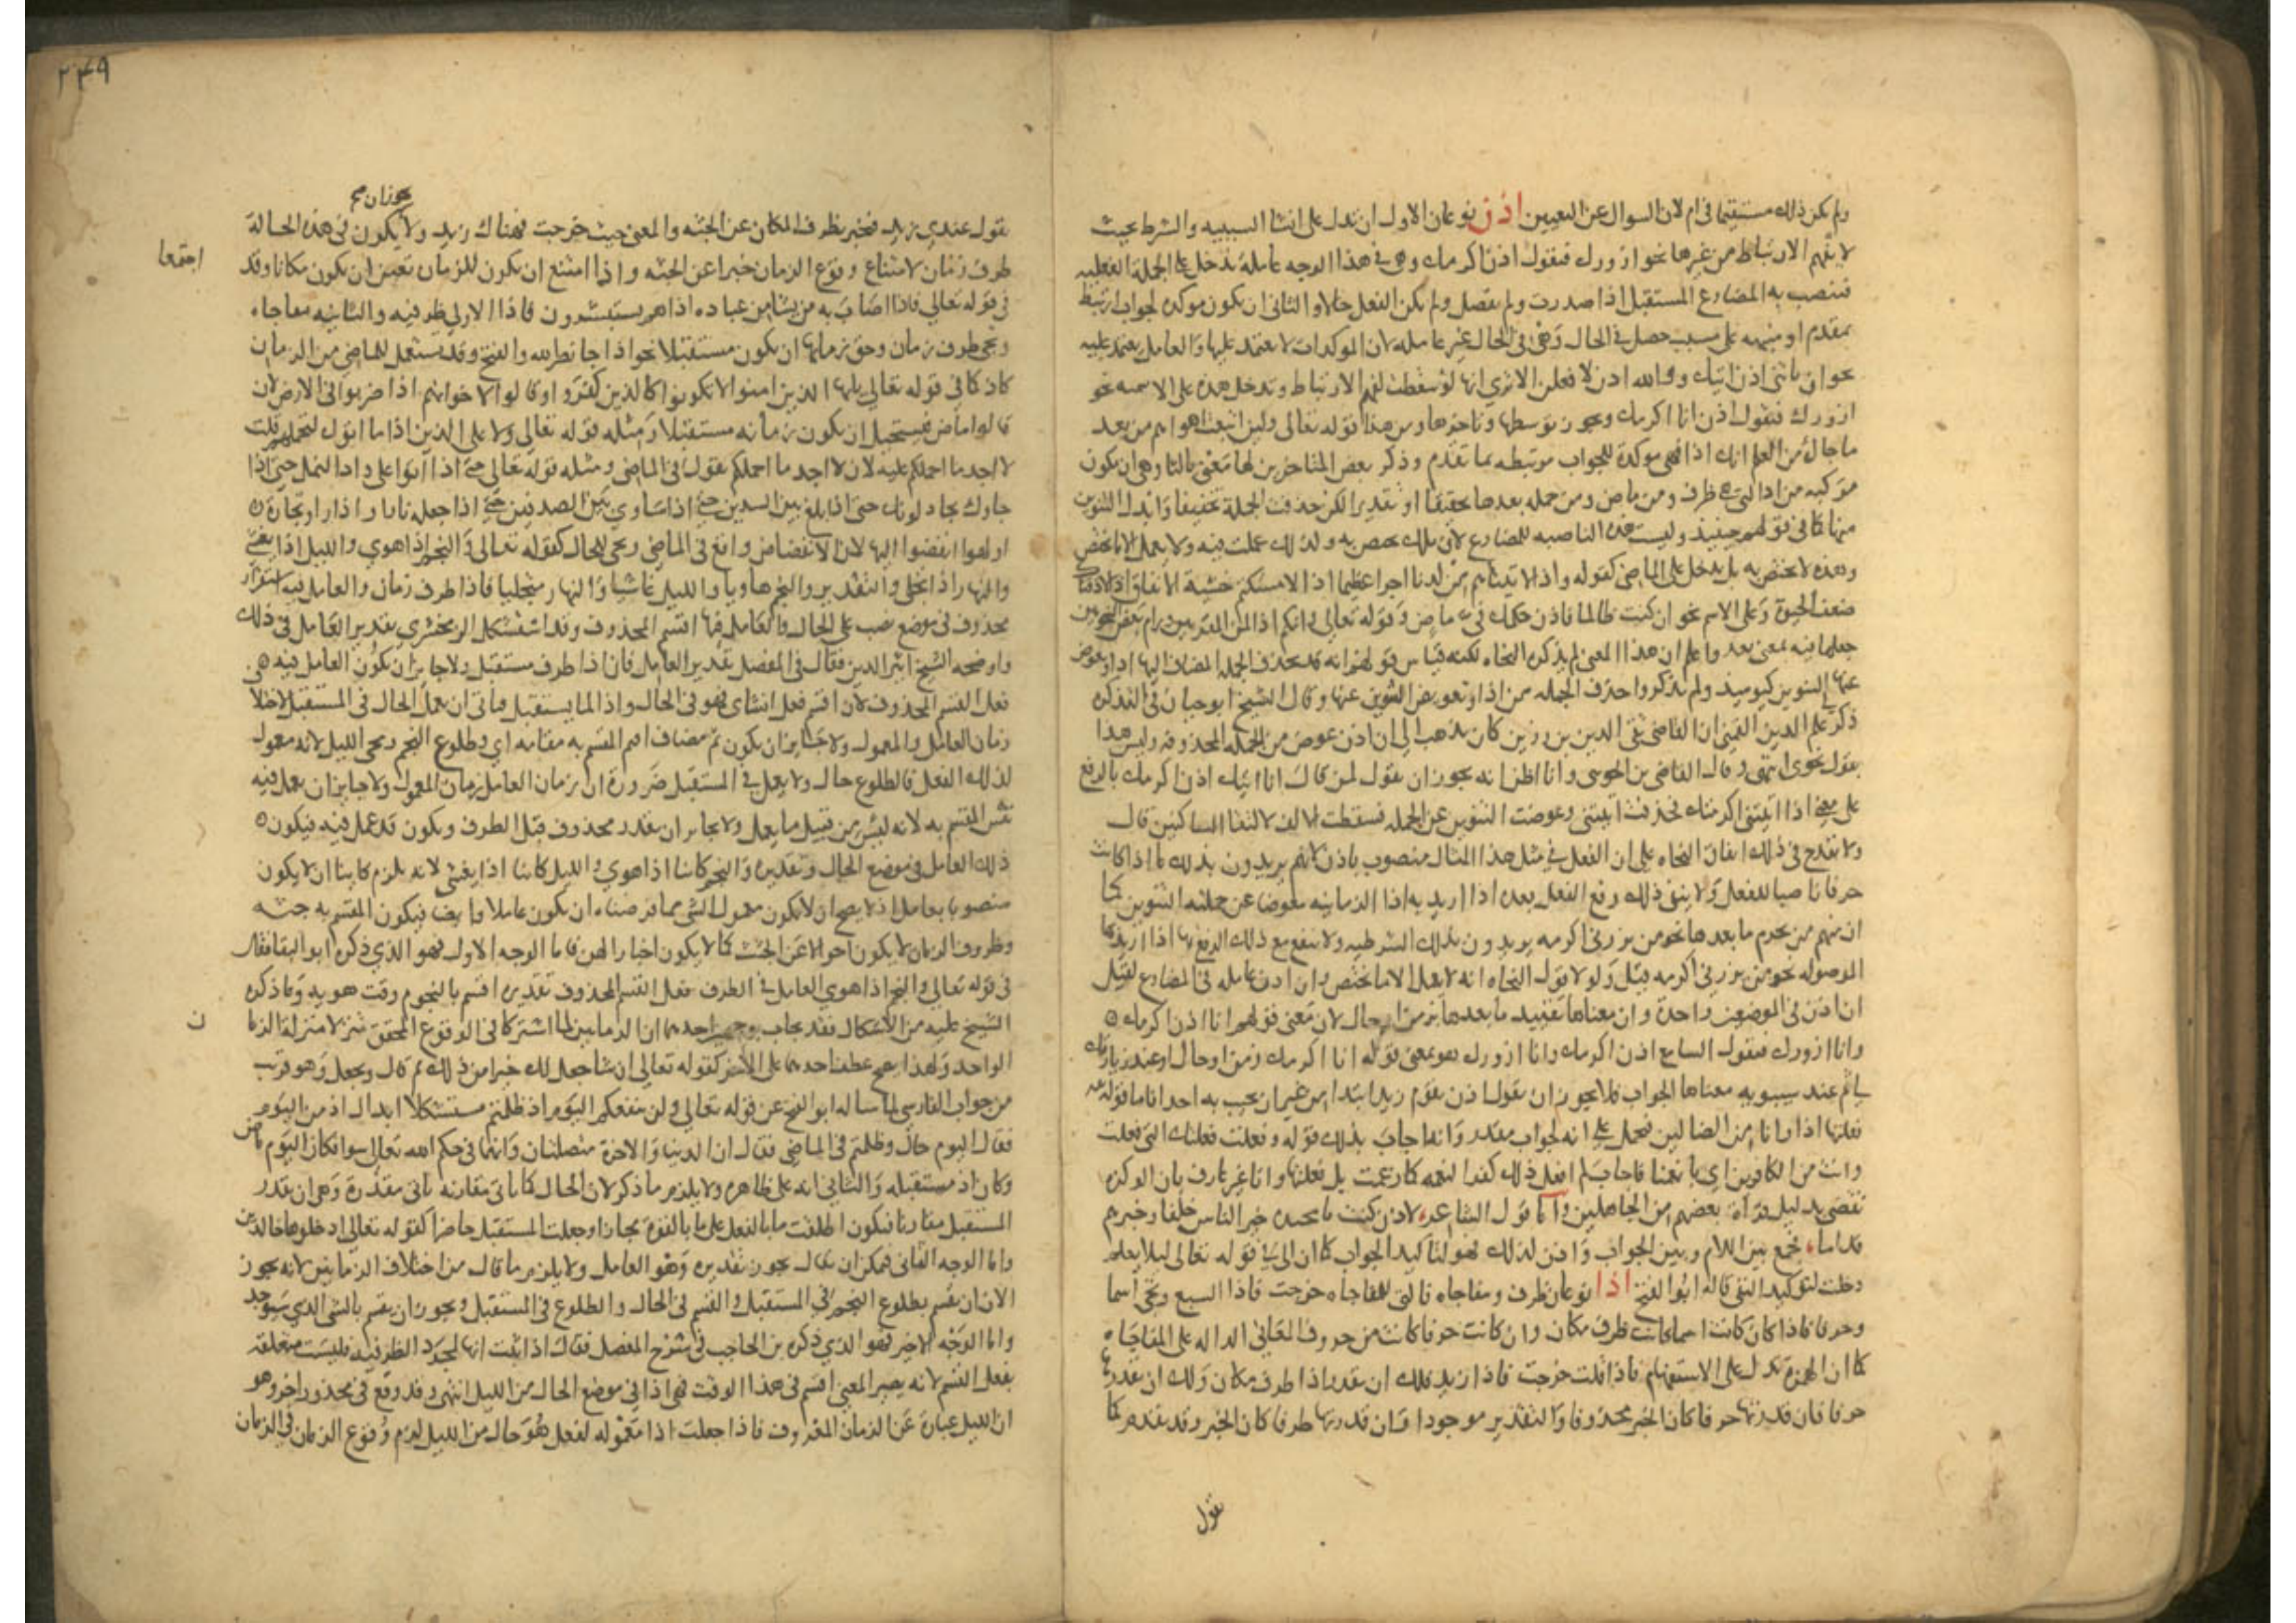 ولم يكن ذلك مستقيما في ام لان السوال عن التعيين اذن نوعان الاول ان تدل على انشا السببيه والشرط بحيث
لا يفهم الارتباط من غيرها نحو ازورك فتقول اذن اكرمك وهي في هذا الوجه عاملة تدخل على الجملة الفعليه
فتنصب به المضارع المستقبل اذا صدرت ولم يفصل ولم يكن الفعل حالا والثاني ان يكون موكدة لجواب ارتبط
بمقدم او منبهه على سبب حصل في الحال وهي في الحال غير عامله لان الموكدات لا يعتمد عليها والعامل يعتمد عليه
نحو ان تاتني اذن اتيك ووالله اذن لافعلن الا ترى انها لو سقطت لفهم الارتباط وتدخل هذه على الاسميه نحو
ازورك فتقول اذن انا اكرمك ويجوز توسطها وتاخرها ومن هذا قوله تعالى ولين اتبعت اهواهم من بعد
ما جاك من العلم انك اذا فهي موكدة للجواب مرتبطه بما تقدم وذكر بعض المتاخرين لها معنى ثالثا وهي ان تكون
مركبه من اذا التي هي ظرف زمن ماض ومن جمله بعدها تحقيقا او تقديرا لكن حذفت الجملة تخفيفا وابدل التنوين
منها كما في قولهم حينيذ وليست هذه الناصبه للمضارع لان تلك تختص به ولذلك عملت فيه ولا يعمل الا ما يختص
وهذه لا تختص به بل تدخل على الماضي كقوله واذا لاتيناهم من لدنا اجرا عظيما اذا لامسكتم خشية الانفاق اذا لاذقناك
ضعف الحيوة وعلى الاسم نحو ان كنت ظالما فاذن حكمك في ماض وقوله تعالى وانكم اذا لمن المقربين ورام بعض النحويين
جعلها فيه بمعنى بعد واعلم ان هذا المعنى لم يذكره النحاه لكنه قياس قولهم انه قد تحذف الجملة المضاف اليها اذ ويعوض
عنها التنوين كيوميذ ولم يذكروا حذف الجمله من اذا وتعويض التنوين عنها وقال الشيخ ابو حيان في التذكره
ذكر علم الدين القمني ان القاضي تقي الدين بن رزين كان يذهب الى ان اذن عوض من الجمله المحذوفه وليس هذا
بقول نحوي انتهى وقال القاضي بن الخويي وانا اظن انه يجوز ان تقول لمن قال انا اتيك اذن اكرمك بالرفع
على معنى اذا اتيتني اكرمتك فحذفت اتيتني وعوضت التنوين عن الجمله فسقطت الالف لالتقا الساكنين قال
ولا يقدح في ذلك اتفاق النحاه على ان الفعل في مثل هذا المثال منصوب باذن لانهم يريدون بذلك ما اذا كانت
حرفا ناصبا للفعل ولا ينفى ذلك رفع الفعل بعده اذا اريد به اذا الزمانيه معوضا عن جملته التنوين كما
ان منهم من يجزم ما بعدها نحو من يزرني اكرمه يريدون بذلك الشرطيه ولا يمنع مع ذلك الرفع بها اذا اريد بها
الموصوله نحو من يزرني اكرمه قيل ولولا قول النحاه انه لا يعمل الا ما يختص وان اذن عامله في المضارع لقيل
ان اذن في الموضعين واحدة وان معناها تقييد ما بعدها بزمن او حال لان معنى قولهم انا اذن اكرمك
وانا ازورك فيقول السامع اذن اكرمك وانا ازورك هو بمعنى قوله انا اكرمك زمن او حال او عند زيارتك
ثم عند سيبويه معناها الجواب فلا يجوز ان تقول اذن يقوم زيد ابتدا من غير ان تجيب به احدا فاما قوله
فعلتها اذا وانا من الضالين فيحمل على انه لجواب مقدر وانه اجاب بذلك قوله وفعلت فعلتك التي فعلت
وانت من الكافرين اي بانعمنا فاجاب لم افعل ذلك كفرا لنعمه كما زعمت بل فعلتها وانا غير عارف بان الوكزه
تقضي بدليل قراة بعضهم من الجاهلين واما قول الشاعر لاذن كنت خير الناس خلفا وخيرهم
قداما جمع بين اللام وبين الجواب واذن لذلك فهو لتاكيد الجواب كما ان الى قوله تعالى ليلا يعلم
دخلت لتوكيد النفي قاله ابو الفتح اذا نوعان ظرف ومفاجاه فالتي للمفاجاه خرجت فاذا السبع وتجي اسما
وحرفا فاذا كان كانت اسما كانت ظرف مكان وان كانت حرفا كانت من حروف المعاني الداله على المفاجاه
كما ان الهمزة تدل على الاستفهام فاذا قلت خرجت فاذا زيد فلك ان تقدر اذا ظرف مكان ولك ان تقدرها
حرفا فان قدرتها حرفا كان الخبر محذوفا والتقدير موجود وان قدرتها ظرفا كان الخبر وقد تقدم كما
تقول
٢٤٩
يجوز ان صح
تقول عندي زيد فتخبر بظرف المكان عن الجثه والمعنى حيث خرجت فهناك زيد ولا يكون في هذه الحالة
اجتمعا
ظرف زمان لامتناع وقوع الزمان خبرا عن الجثه واذا امتنع ان يكون للزمان تعين ان يكون مكانا وقد
في قوله تعالى فاذا اصاب به من يشا من عباده اذا هم يستبشرون فاذا الاولى ظرفيه والثانيه مفاجاه
وتجي ظرف زمان وحق زمانها ان يكون مستقبلا نحو اذا جا نصر الله والفتح وقد يستعمل للماضي من الزمان
كاذ كما في قوله تعالى يايها الذين امنوا لا تكونوا كالذين كفروا وقالوا لاخوانهم اذا ضربوا في الارض لان
قالوا ماض فيستحيل ان يكون زمانه مستقبلا ومثله قوله تعالى ولا على الذين اذا ما اتوك لتحملهم قلت
لا اجد ما احملكم عليه لان لا اجد ما احملكم مقول في الماضي ومثله قوله تعالى حتى اذا اتوا على واد النمل حتى اذا
جاوك يجادلونك حتى اذا بلغ بين السدين حتى اذا ساوى بين الصدفين حتى اذا جعله نارا واذا راوا تجارة
او لهوا انفضوا اليها لان الانفضاض واقع في الماضي وتجي للحال كقوله تعالى والنجم اذا هوى والليل اذا يغشى
والنهار اذا تجلى والتقدير والنجم هاويا والليل غاشيا والنهار متجليا فاذا ظرف زمان والعامل فيه استقرار
محذوف في موضع نصب على الحال والعامل فيها اقسم المحذوف وقد استشكل الزمخشري تقدير العامل في ذلك
واوضحه الشيخ اثير الدين فقال في المفصل تقدير العامل فان اذا ظرف مستقبل ولا جايز ان يكون العامل فيه
فعل القسم المحذوف لان اقسم فعل انشاي فهو في الحال واذا لما يستقبل فياتي ان يعمل الحال في المستقبل لاختلاف
زمان العامل والمعمول ولا جايز ان يكون ثم مضاف اقيم المقسم به مقامه اي وطلوع النجم ومجي الليل لانه معمول
لذلك الفعل فالطلوع حال ولا يعمل في المستقبل ضرورة ان زمان العامل زمان المعمول ولا جايز ان يعمل فيه
نفس المقسم به لانه ليس من قبيل ما يعمل ولا جايز ان يقدر محذوف قبل الظرف ويكون قد عمل فيه فيكون
ذلك العامل في موضع الحال وتقديره والنجم كاينا اذا هوى والليل كاينا اذا يغشى لانه يلزم كاينا ان لا يكون
منصوبا بعامل اذ لا يصح ان لا يكون معمولا لشي مما فرضناه ان يكون عاملا وايضا فيكون المقسم به جثه
وظروف الزمان لا يكون احوالا عن الجثث كما لا يكون اخبارا لهن فاما الوجه الاول فهو الذي ذكره ابو البقا فقال
في قوله تعالى والنجم اذا هوى العامل في الظرف فعل القسم المحذوف تقديره اقسم بالنجوم وقت هويه وما ذكره
الشيخ عليه من الاشكال فقد يجاب بوجهين احدهما ان الزمانين لما اشتركا في الوقوع المحقق نزلا منزلة الزما
ن
الواحد ولهذا يصح عطف احدهما على الاخر كقوله تعالى ان شا جعل لك خيرا من ذلك ثم قال ويجعل وهو قريب
من جواب الفارسي لما ساله ابو الفتح عن قوله تعالى ولن ينفعكم اليوم اذ ظلمتم مستشكلا ابدال اذ من اليوم
فقال اليوم حال وظلمتم في الماضي فقال ان الدنيا والاخرة متصلتان وانهما في حكم الله تعالى سوا فكان اليوم ماض
وكان اذ مستقبله والثاني انه على ظاهره ولا يلزم ما ذكر لان الحال كما تاتي مقارنه تاتي مقدرة وهي ان تقدر
المستقبل مقارنا فيكون اطلقت ما بالفعل على ما بالقوة مجازا وجعلت المستقبل حاضرا كقوله تعالى ادخلوها خالدين
واما الوجه الثاني فيمكن ان يقال يجوز تقديره وهو العامل ولا يلزم ما قال من اختلاف الزمانين لانه يجوز
الان ان يقسم بطلوع النجم في المستقبل والقسم في الحال والطلوع في المستقبل ويجوز ان يقسم بالشي الذي سيوجد
واما الوجه الاخير فهو الذي ذكره بن الحاجب في شرح المفصل فقال اذا ثبت انها لمجرد الظرفيه فليست متعلقه
بفعل القسم لانه يصير المعنى اقسم في هذا الوقت فهي اذا في موضع الحال من الليل انتهى وقد وقع في محذور اخر وهو
ان الليل عبارة عن الزمان المعروف فاذا جعلت اذا معموله لفعل هو حال من الليل لزم وقوع الزمان في الزمان